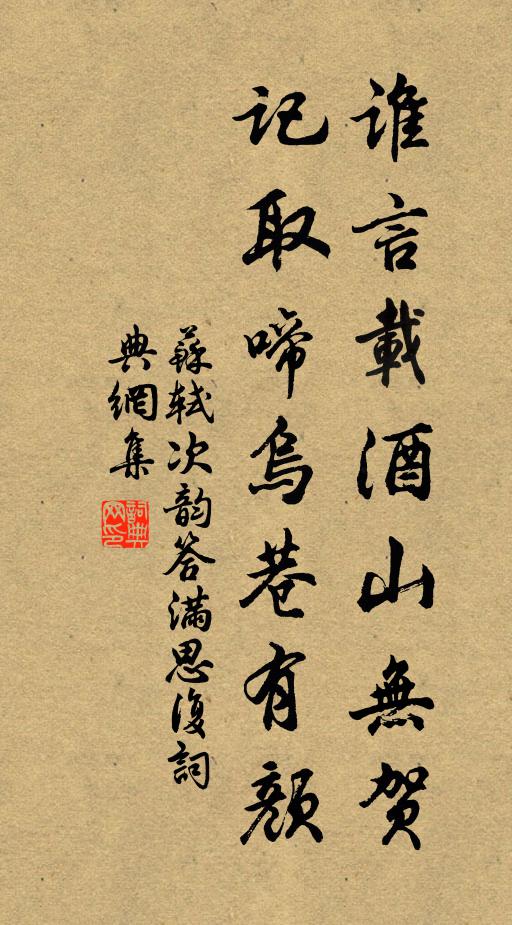 誰言載酒山無賀
記取啼烏巷有顏
蘇軾次韵答滿思復詞
典網集
詞典網印